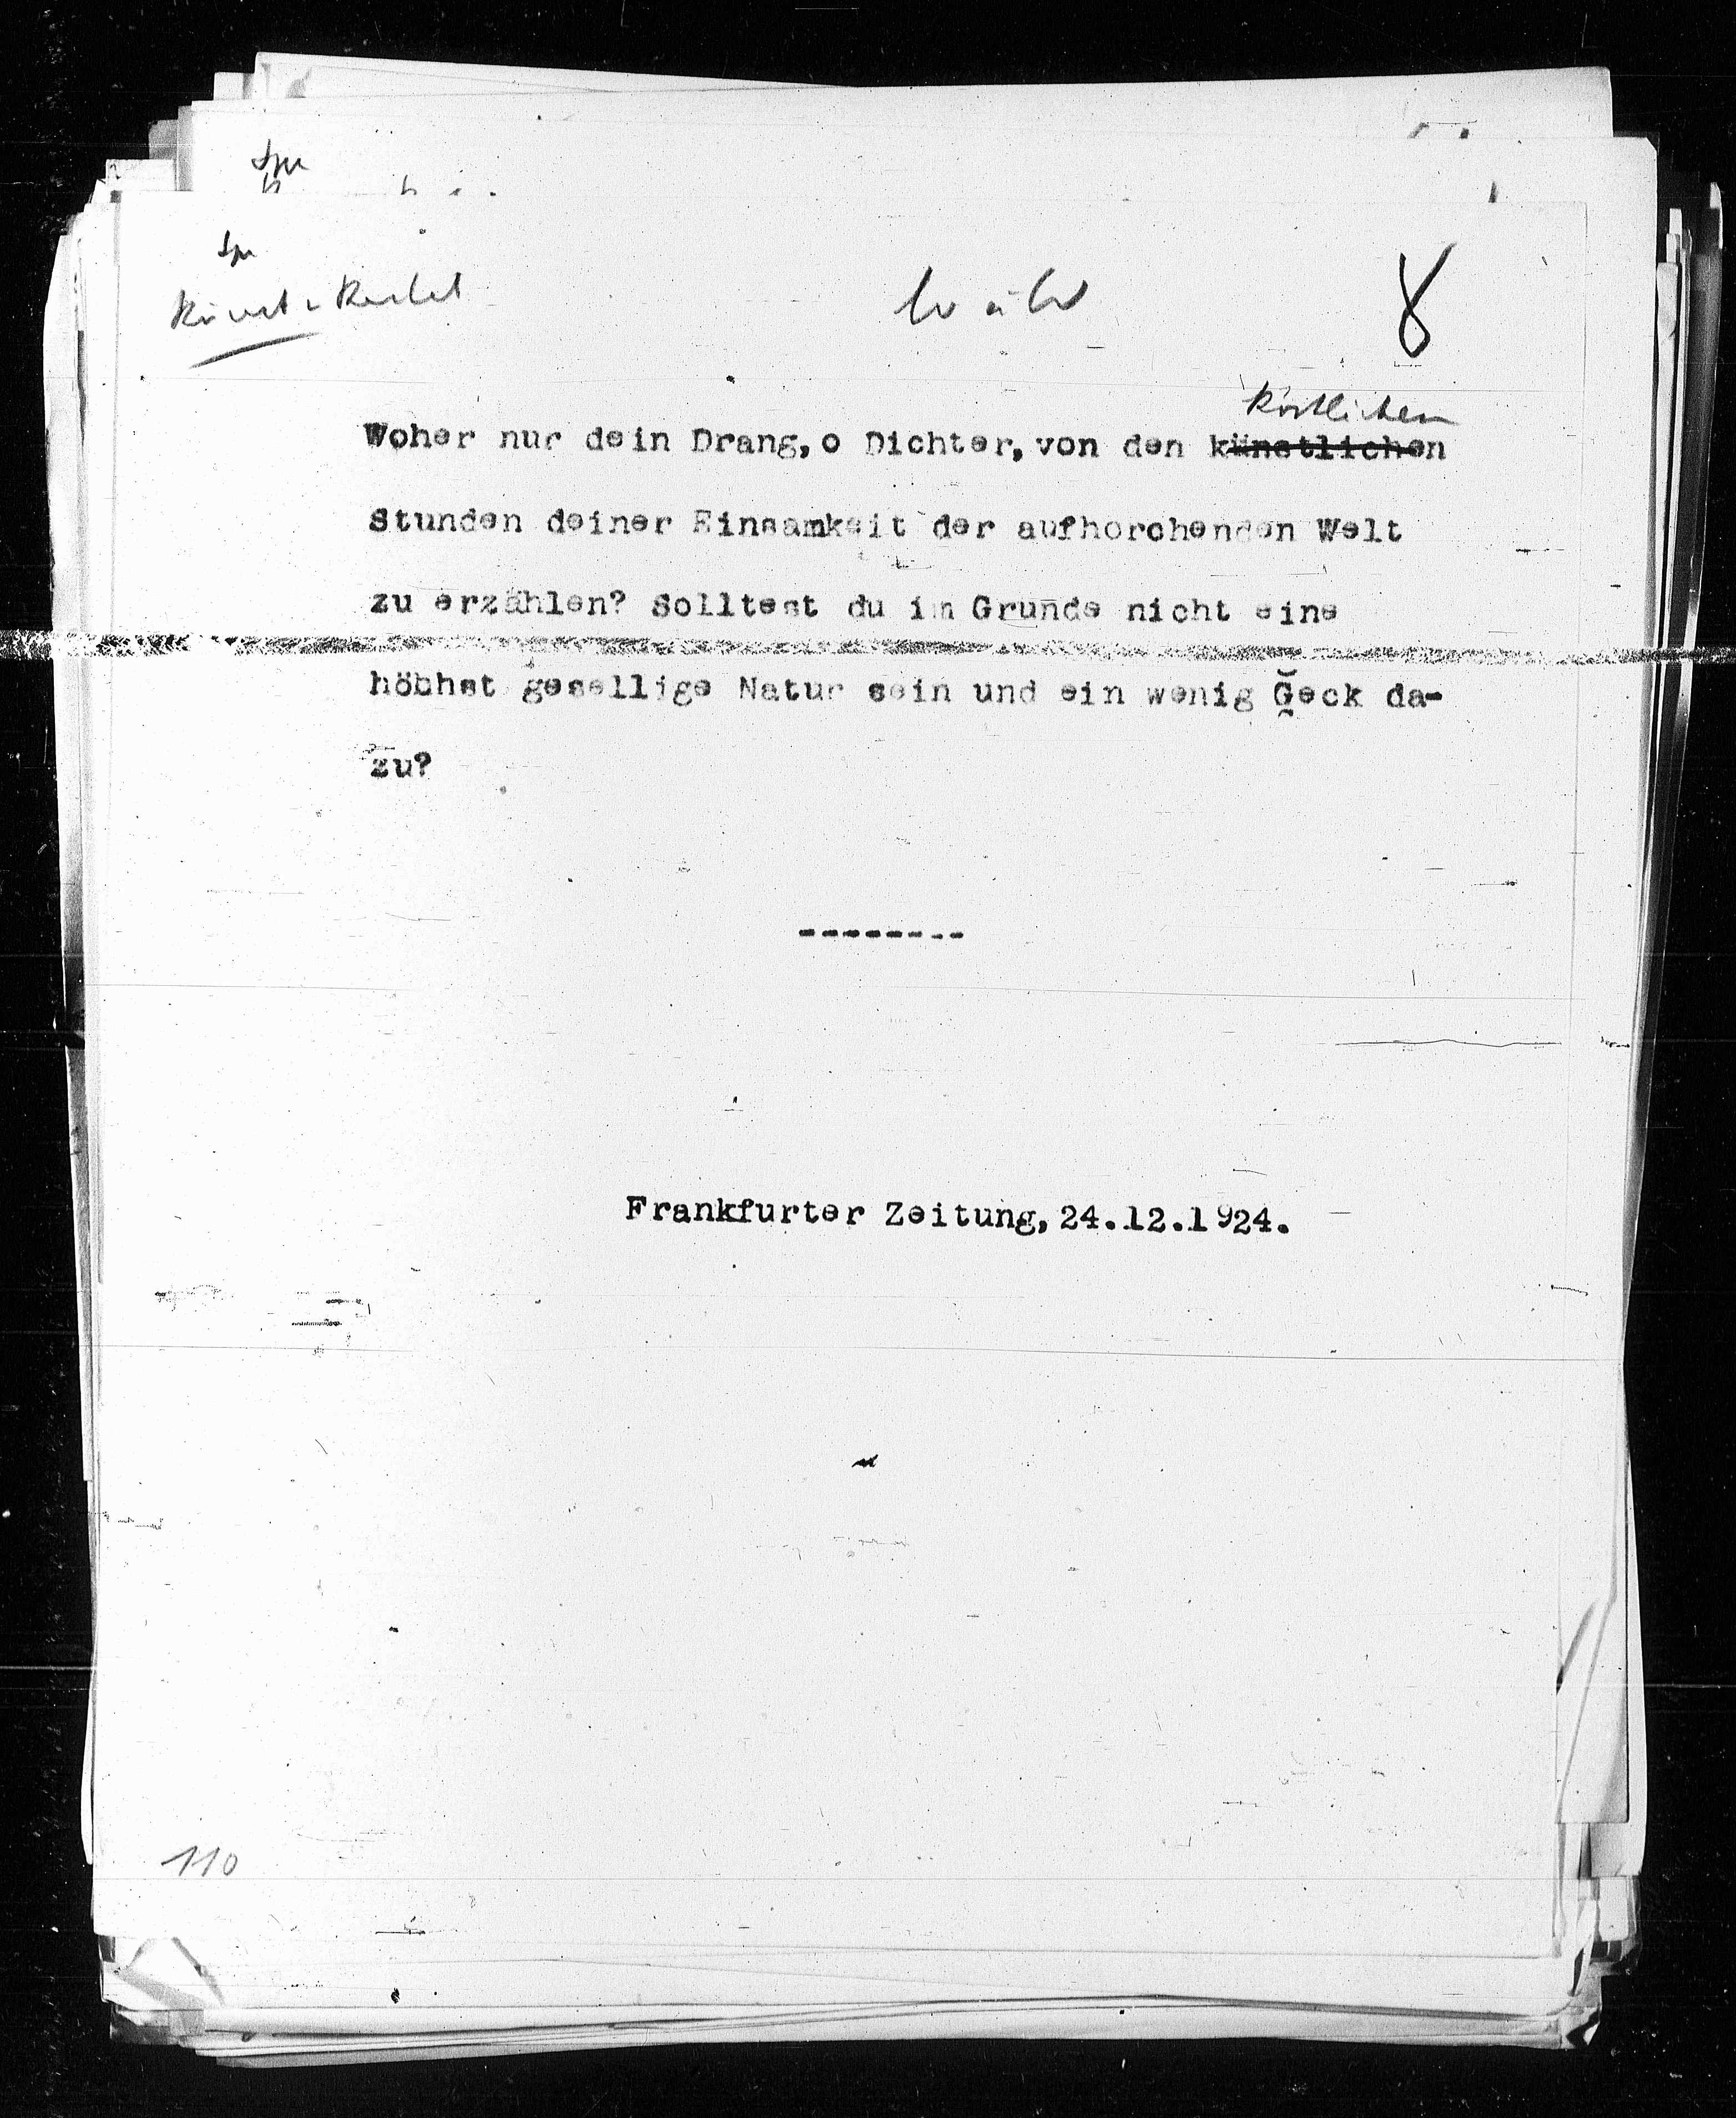 8
köstlichen
Woher nur dein Drang, o Dichter, von den künstlichen
Stunden deiner Einsamkeit der aufhorchenden Welt
zu erzählen? Solltest du im Grunde nicht eine
höchst gesellige Natur sein und ein wenig Geck da-
zu?
--------
Frankfurter Zeitung, 24.12.1924.
110